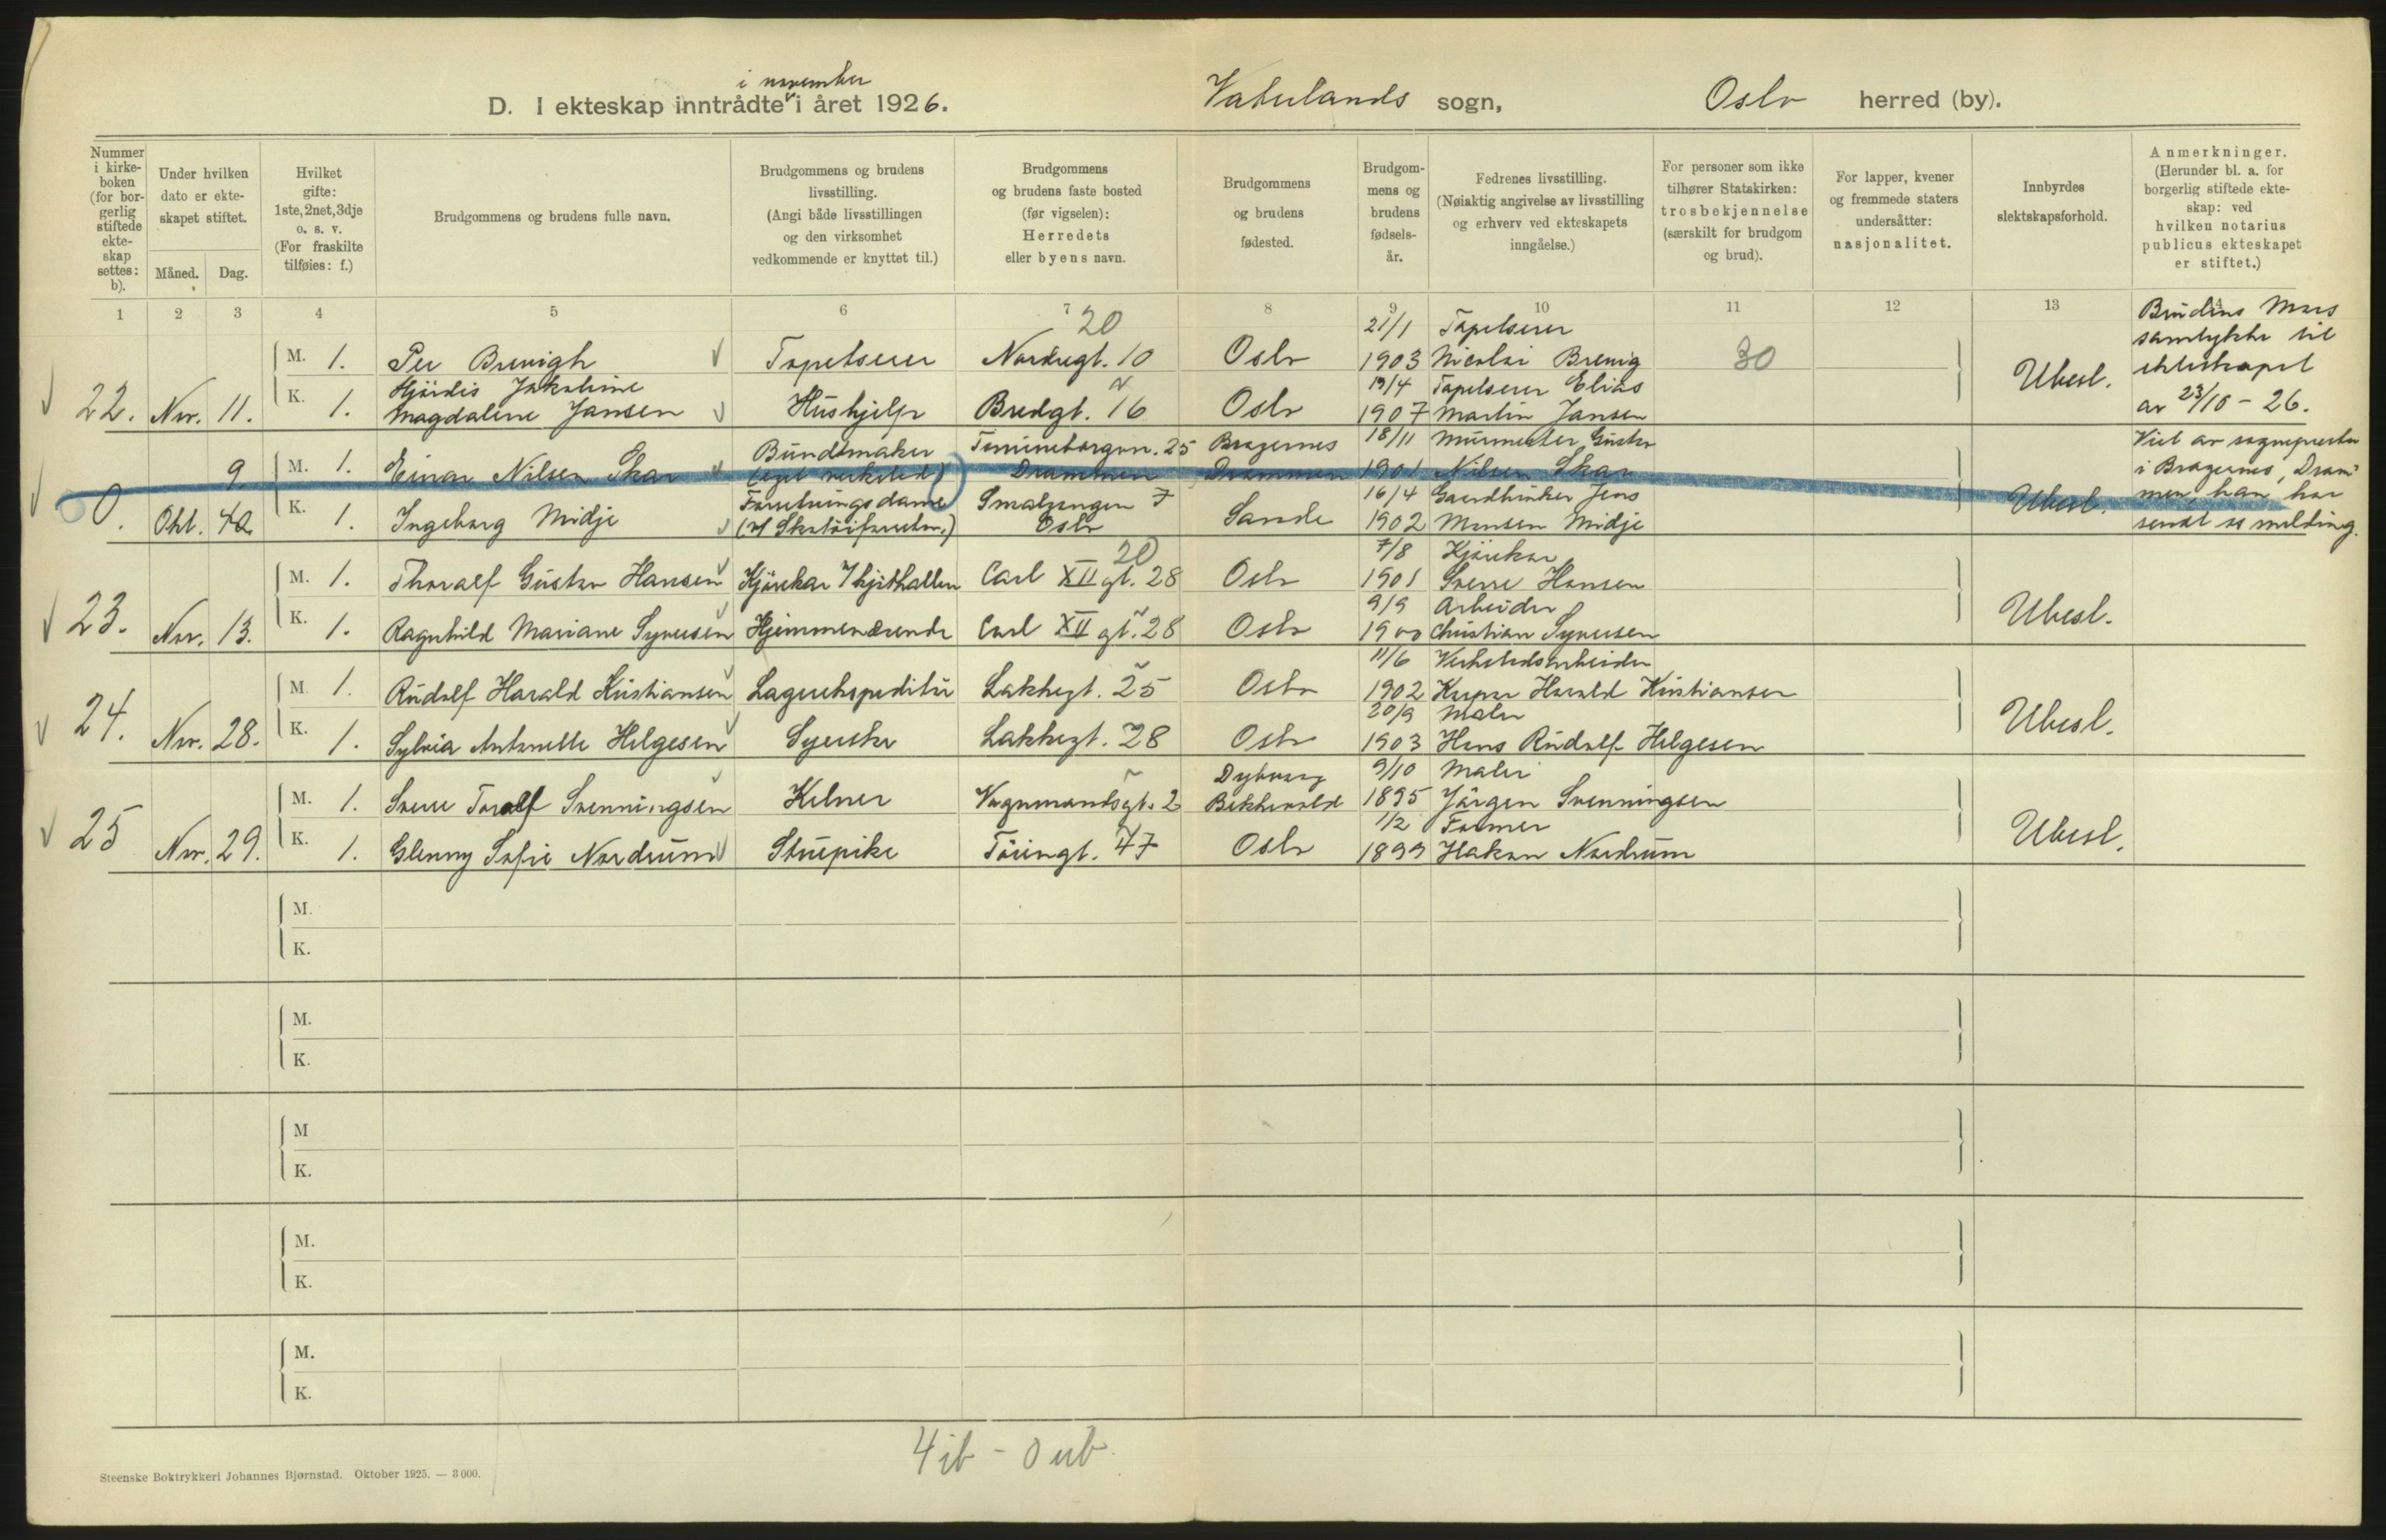 i november
D. I ekteskap inntrådte i året 1926. Vaterlands sogn, Oslo herred (by).
Nummer i kirke-boken (for bor-gerlig stiftede ekte-skap settes: b).
Under hvilken dato er ekte-skapet stiftet.
Måned. Dag.
Hvilket gifte: 1ste, 2net, 3dje o. s. v. (For fraskilte tilføies: f.)
Brudgommens og brudens fulle navn.
Brudgommens og brudens livsstilling. (Angi både livsstillingen og den virksomhet vedkommende er knyttet til.)
Brudgommens og brudens faste bosted (før vigselen): Herredets eller byens navn.
Brudgommens og brudens fødested.
Brudgom-mens og brudens fødsels-år.
Fedrenes livsstilling. (Nøiaktig angivelse av livsstilling og erhverv ved ekteskapets inngåelse.)
For personer som ikke tilhører Statskirken: trosbekjennelse (særskilt for brudgom og brud).
For lapper, kvener og fremmede staters undersåtter: nasjonalitet.
Innbyrdes slektskapsforhold.
Anmerkninger. (Herunder bl. a. for borgerlig stiftede ekte-skap: ved hvilken notarius publicus ekteskapet er stiftet.)
1 2 3 4 5 6 7 8 9 10 11 12 13 14
20
M. 1. Per Brevigh Tapetserer Nordregt. 10 Oslo 21/1 1903 Tapetserer Nicolai Brevig 30
22. Nov. 11. K. 1. Hjördis Jakobine Magdalene Jansen Hushjelp Bredgt. 16 Oslo 19/4 1907 Tapetserer Elias Martin Jansen Ubesl.
Brudens Mors samtykke til ekteskapet av 23/10 - 26.
9 M. 1. Einar Nilsen Skar Bundtmaker (eget verksted) 25 Drammen Bragernes Drammen 18/11 1901 Murmester Gustav Nilsen Skar
0. Okt. K. 1. Ingeborg Midje Forretningsdame Smalgangen 7 Oslo Sande 16/4 1902 Gaardbruker Jens Midje Ubesl.
Viet av sognepresten i Bragernes, Drammen, han har sendt melding.
20
M. 1. Thoralf Gustav Hansen Kjörekar Carl XII gt. 28 Oslo 7/8 1901 Kjörekar Sverre Hansen
23. Nov. 13. K. 1. Ragnhild Mariane Syversen Hjemmeværende Carl XII gt. 28 Oslo 9/9 1900 Arbeider Christian Syversen Ubesl.
M. 1. Rudolf Harald Kristiansen Lagerekspeditör Lakkegt. 25 Oslo 11/6 1902 Verkstedsarbeider Kaspar Harald Kristiansen
24. Nov. 28. K. 1. Sylvia Antonette Helgesen Syerske Lakkegt. 28 Oslo 20/9 1903 Maler Hans Rudolf Helgesen Ubesl.
M. 1. Sverre Toralf Svenningsen Kelner Vognmandsgt. 2 Dybvaag 9/10 1895 Maler Jörgen Svenningsen
25 Nov. 29. K. 1. Glenny Sofie Nordrum Stuepike Töiengt. 47 Oslo 1/2 1899 Former Hakon Nordrum Ubesl.
M.
K.
M.
K.
M
K.
M.
K.
M.
K.
4 ib - 0 ub.
Steenske Boktrykkeri Johannes Bjørnstad. Oktober 1925. — 3 000.